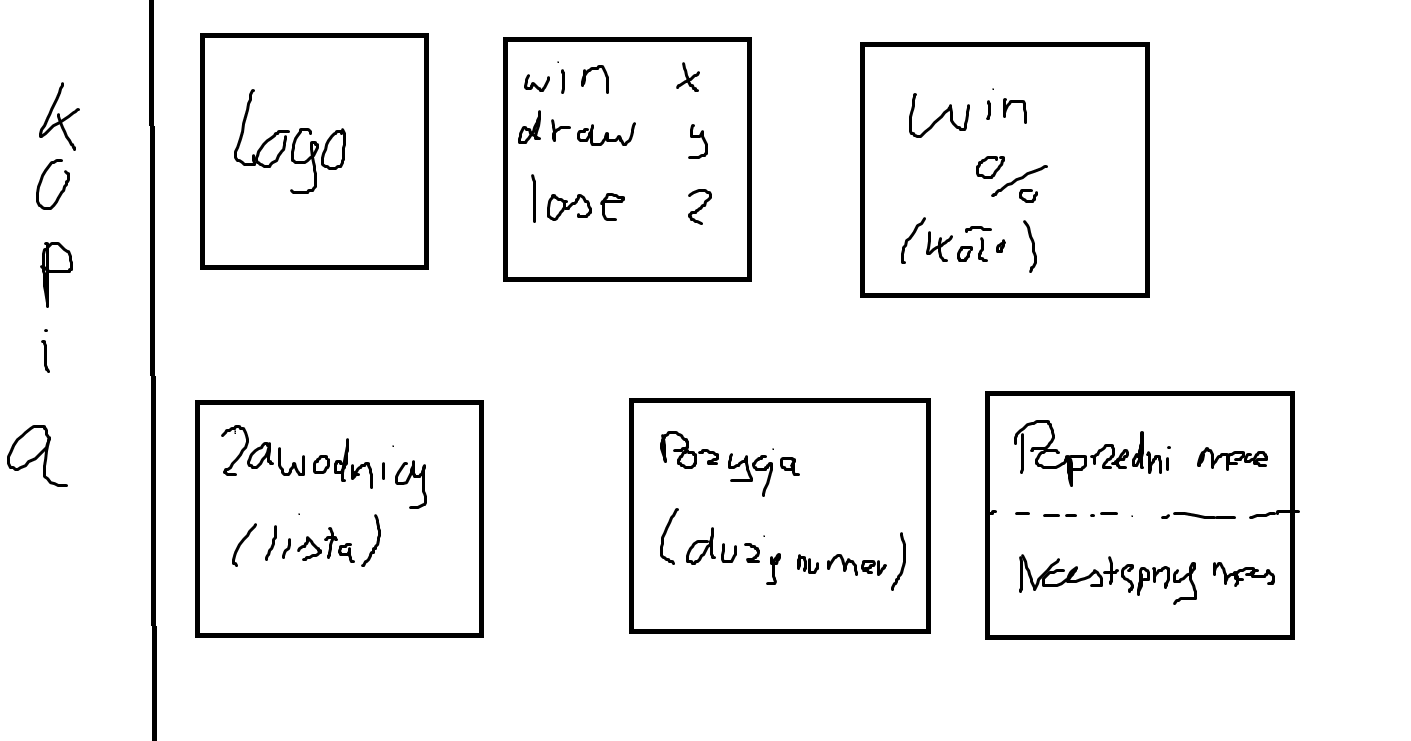 Kopia
Logo
win x
draw y
lose z
Win
%
(koło)
Zawodnicy
(lista)
Pozycja
(duży numer)
Poprzedni mecz
Następny mecz